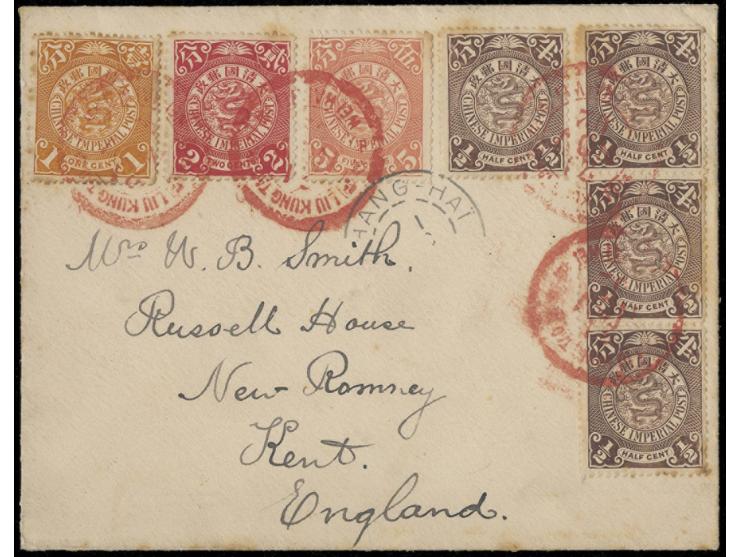 分 政郵國清大 壹
CHINESE IMPERIAL POST
1 ONE CENT 1
分 政郵國清大 貳
CHINESE IMPERIAL POST
2 TWO CENT 2
分 政郵國清大 伍
CHINESE IMPERIAL POST
5 5
分 政郵國清大 半
CHINESE IMPERIAL POST
½ HALF CENT ½
分 政郵國清大 半
CHINESE IMPERIAL POST
½ HALF CENT ½
LIU KUNG
LIU KUNG
HANG-HAÏ
分 政郵國清大 半
CHINESE IMPERIAL POST
½ HALF CENT ½
分 政郵國清大 半
CHINESE IMPERIAL POST
½ HALF CENT ½
Mrs W. B. Smith.
Russell House
New Romney
Kent.
England.